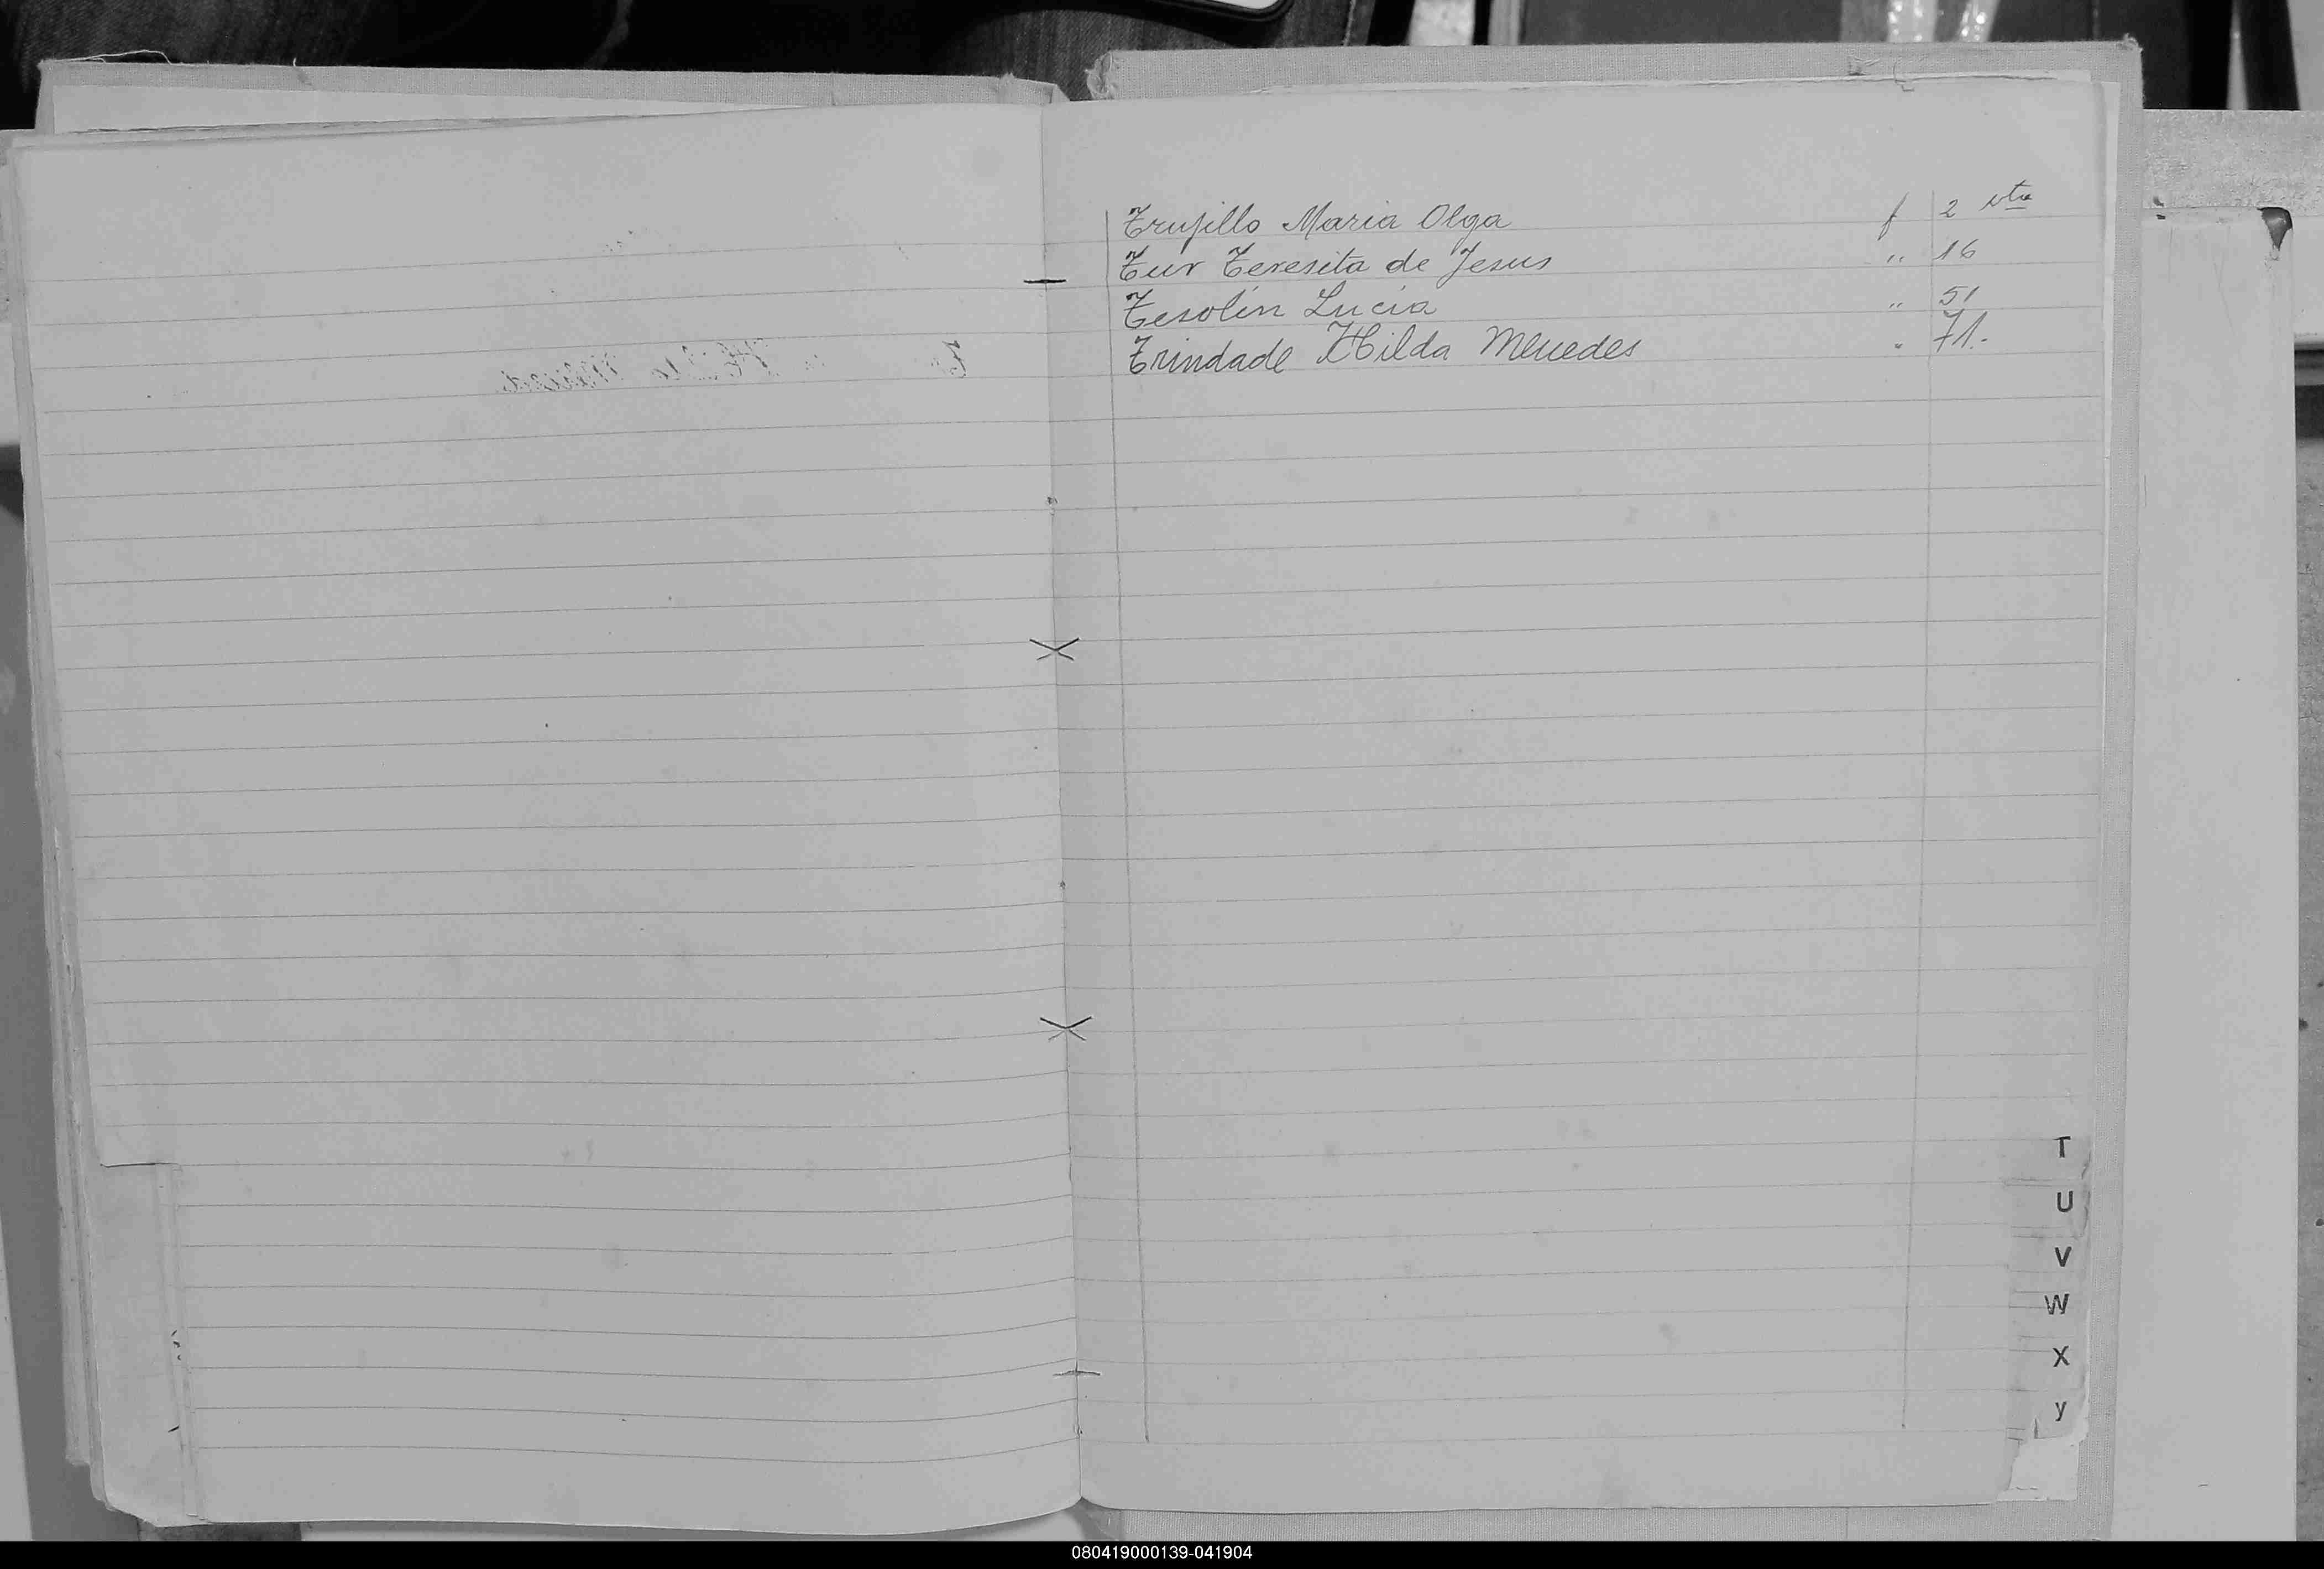 Trujillo Maria Olga f 2 vta
Tur Teresita de Jesus " 16
Tesolin Lucia " 51
Trindade Hilda Mercedes " 71.-
T
U
V
W
X
y
080419000139-041904